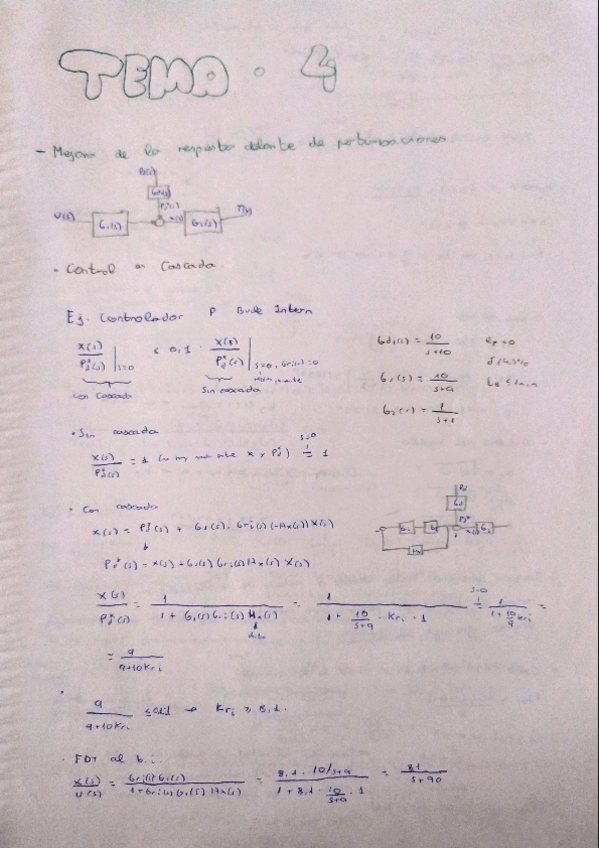 TEMA. 4
- Mejora de la respuesta delante de perturbaciones
U(s) G1(s) Pd*(s) X(s) G2(s) Y(s)
• Control en Cascada
Ej. Controlador P Bucle Intern
X(s)/Pd*(s) |s=0 ≤ 0,1 · X(s)/Pd*(s) |s=0, Gri(s)=0
con cascada
Sin cascada
Gd1(s) = 10/(s+10) ep=0
G1(s) = 10/(s+9)
G2(s) = 1/(s+1)
• Sin cascada
X(s)/Pd*(s) = 1 s=0 = 1
• Con cascada
X(s) = Pd*(s) + G1(s) · Gri(s)(-Hx(s))X(s)
Pd*(s) = X(s) + G1(s) Gri(s) Hx(s) X(s)
X(s)/Pd*(s) = 1/(1 + G1(s) Gri(s) Hx(s)) = 1/(1 + 10/(s+9) · Kri · 1) s=0 = 1/(1 + 10/9 Kri) =
= 9/(9+10Kri)
9/(9+10Kri) ≤ 0,1 → Kri ≥ 8,1.
• FDT al b...
X(s)/U(s) = Gri(s) G1(s)/(1 + Gri(s) G1(s) Hx(s)) = 8,1 · 10/s+9/(1 + 8,1 · 10/(s+9) · 1) = 81/(s+90)